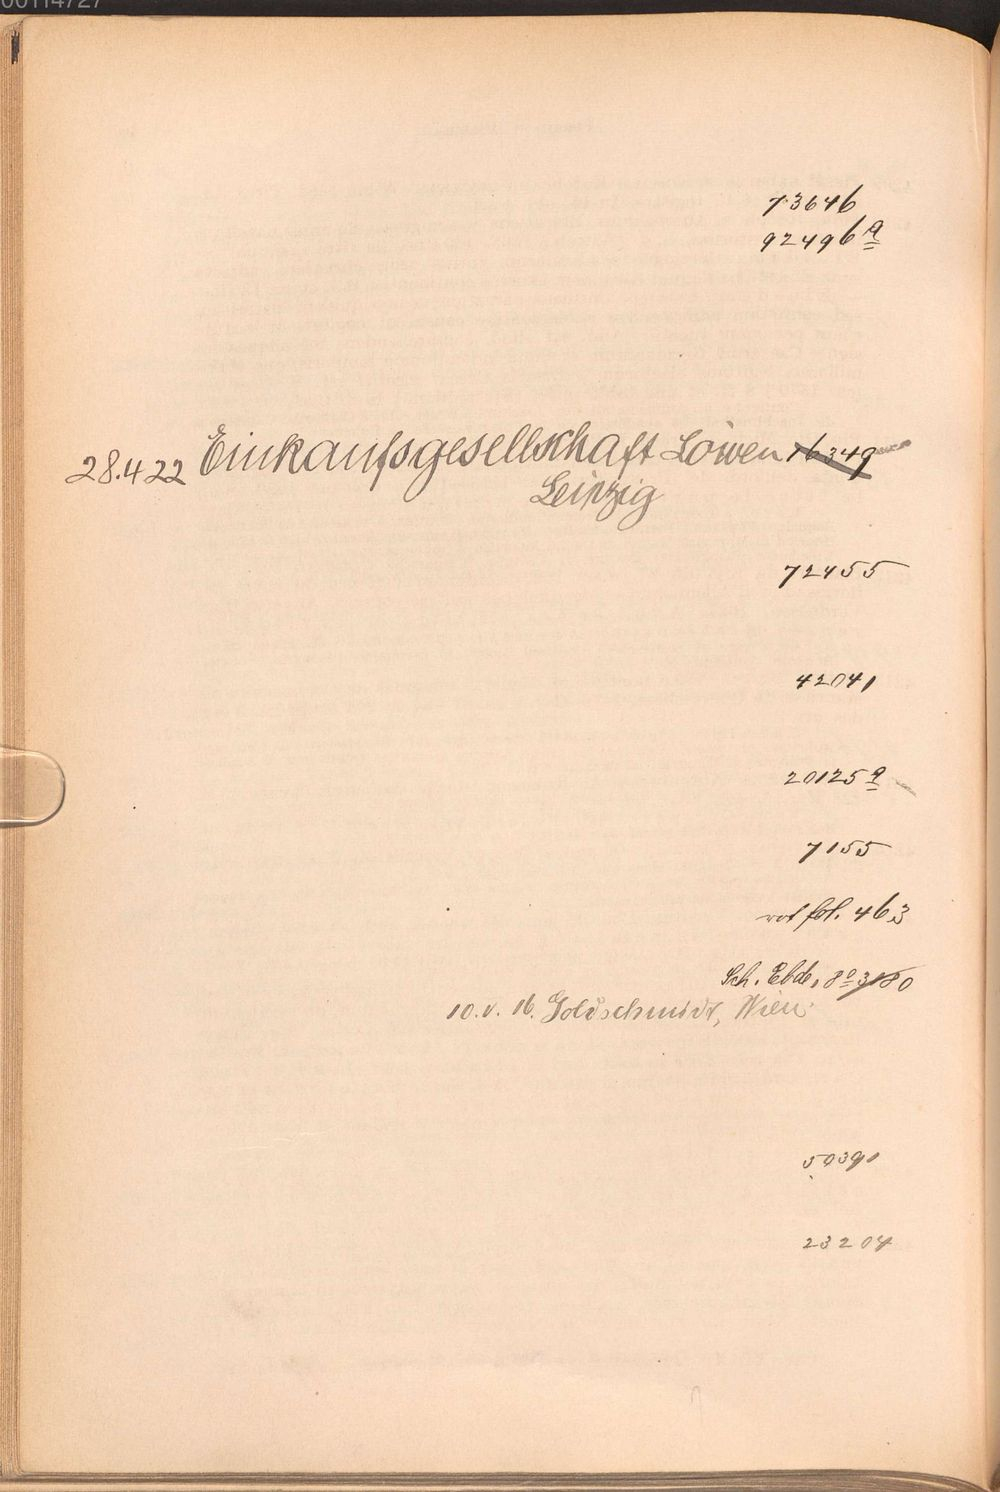 00114727
73646
92496 a
28.4.22 Einkaufsgesellschaft Löwen 16349
Leipzig
72455
42041
20125 a
7155
rot fol. 463
Sch. Ebde, 8º 3180
10. v. 16. Goldschmidt, Wien
50391
23204